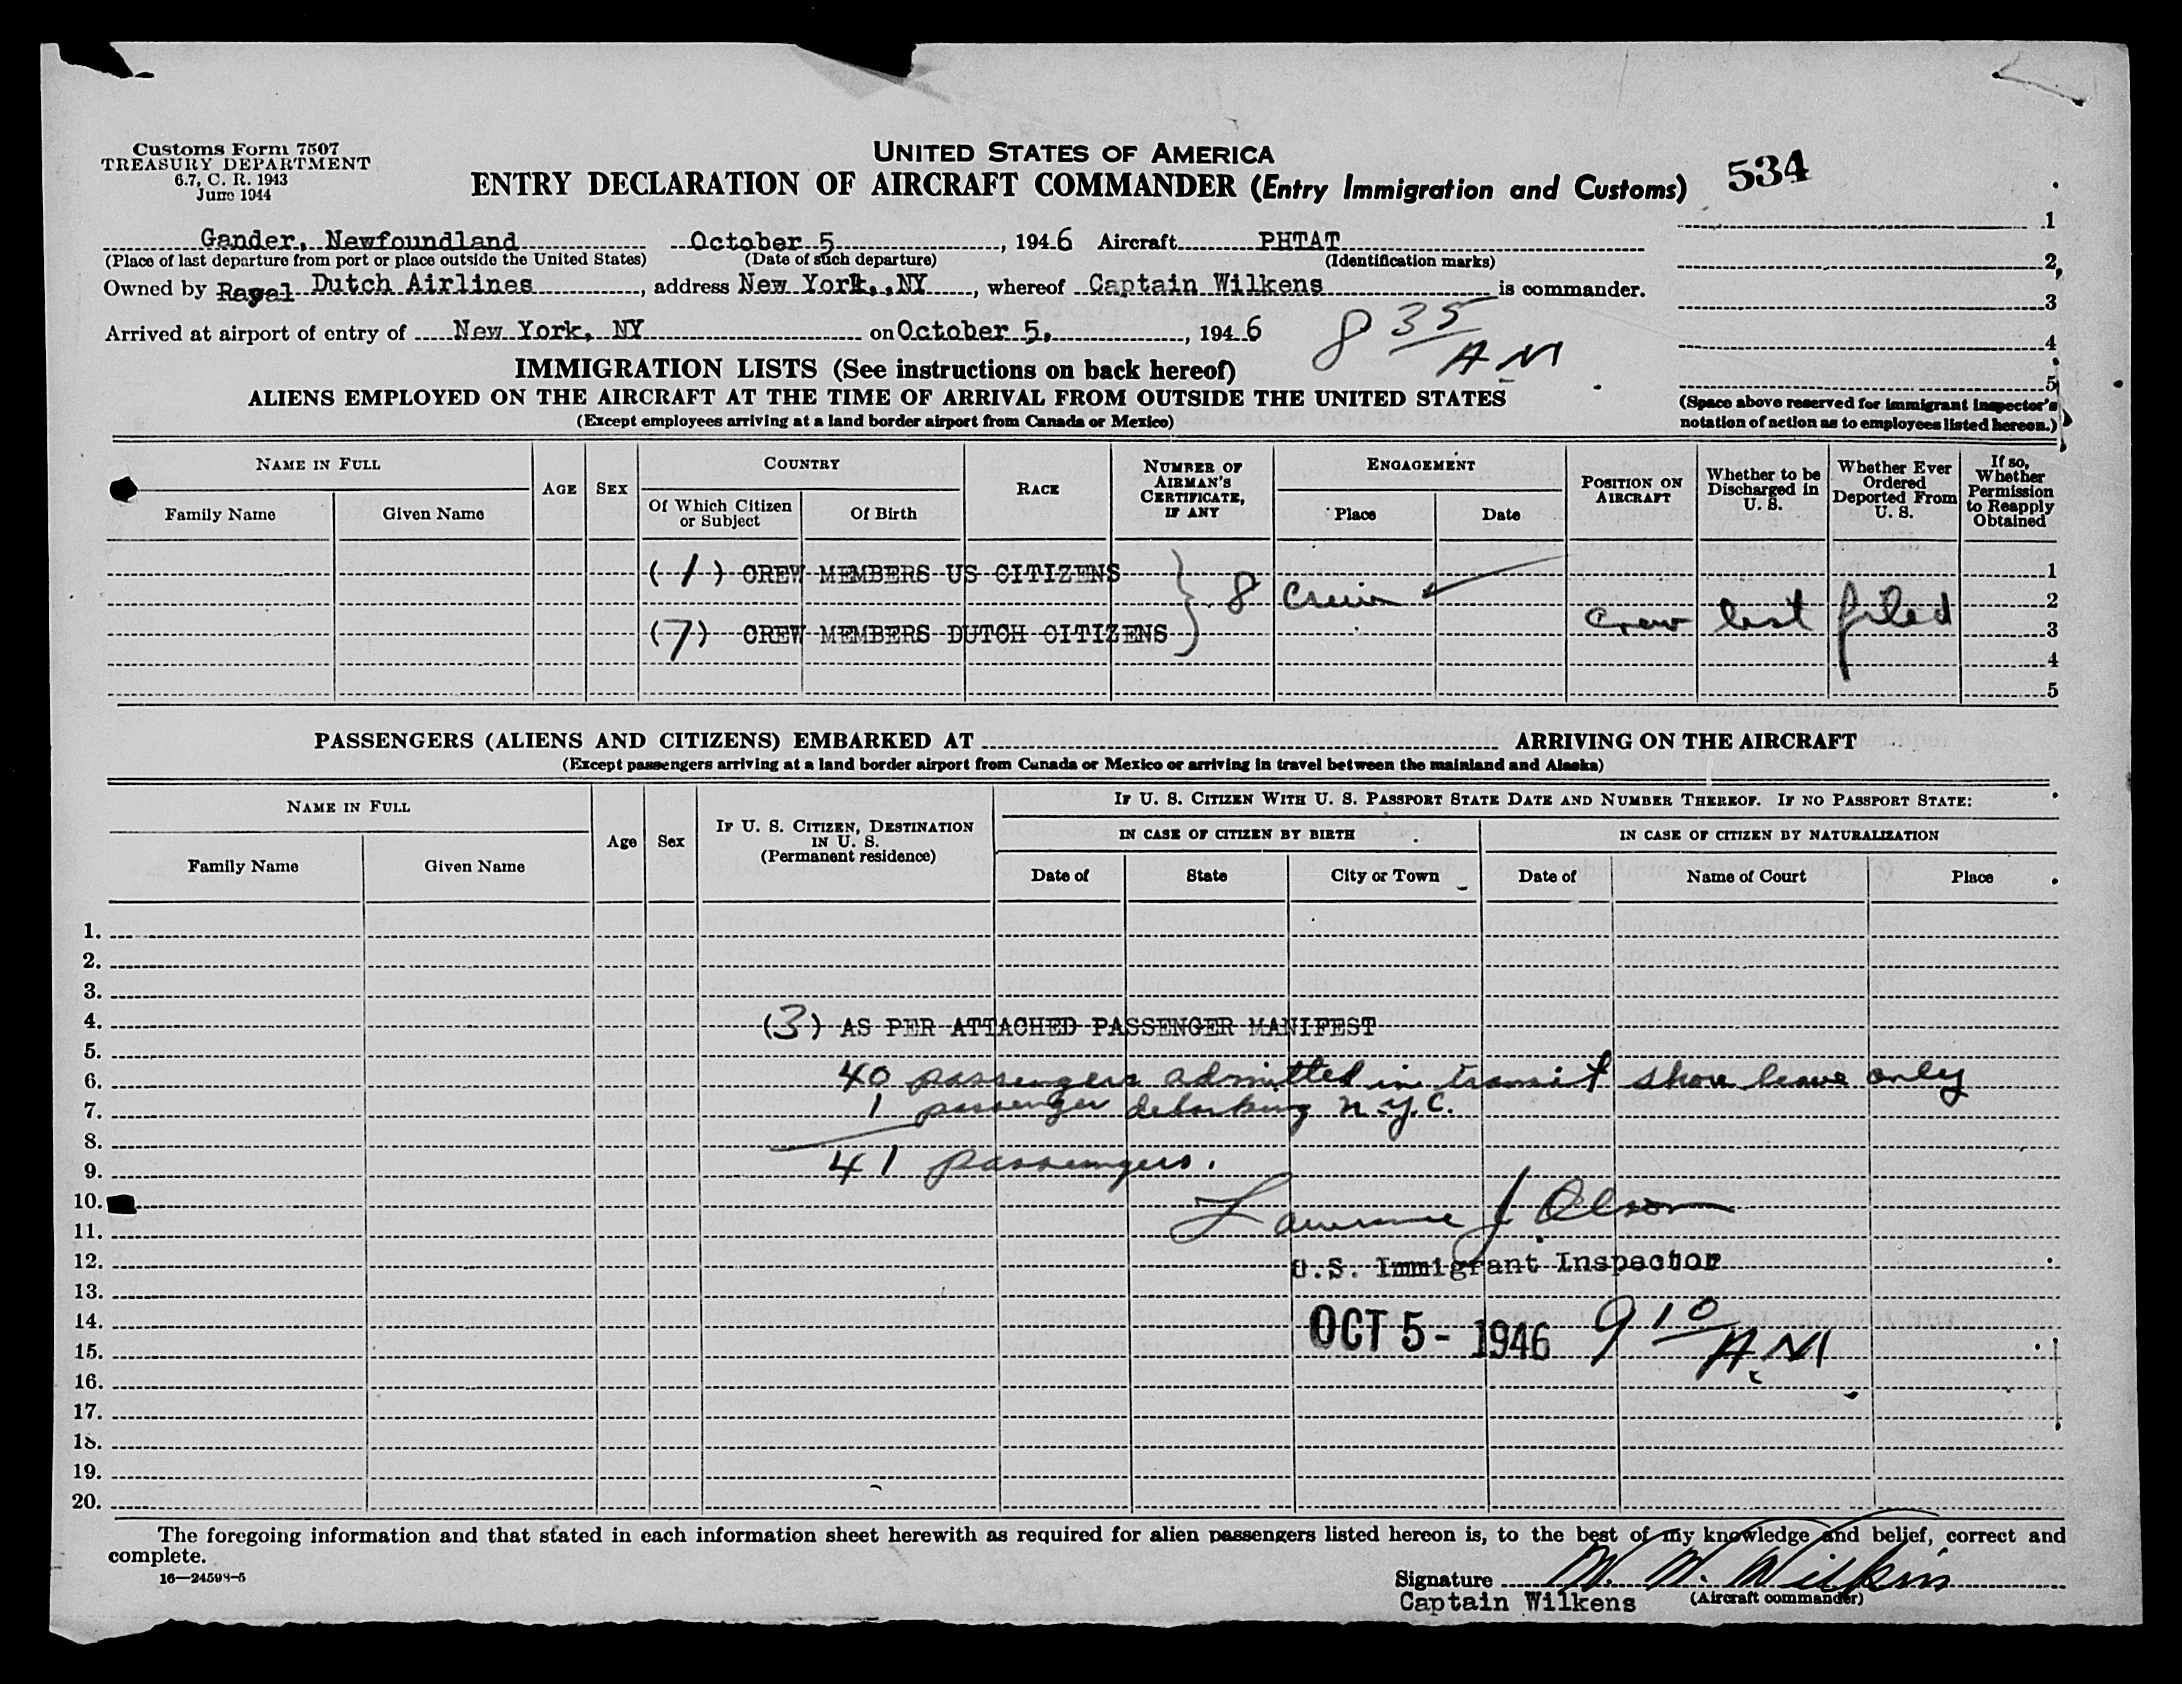 Customs Form 7507
TREASURY DEPARTMENT
6.7, C. R. 1943
June 1944
UNITED STATES OF AMERICA
ENTRY DECLARATION OF AIRCRAFT COMMANDER (Entry Immigration and Customs)
534
Gander, Newfoundland October 5, 1946 Aircraft PHTAT
(Place of last departure from port or place outside the United States) (Date of such departure) (Identification marks)
Owned by Royal Dutch Airlines, address New York,,NY, whereof Captain Wilkens is commander.
Arrived at airport of entry of New York, NY on October 5, 1946
8 35 AM
1
2
3
4
5
(Space above reserved for immigrant inspector's notation of action as to employees listed hereon.)
IMMIGRATION LISTS (See instructions on back hereof)
ALIENS EMPLOYED ON THE AIRCRAFT AT THE TIME OF ARRIVAL FROM OUTSIDE THE UNITED STATES
(Except employees arriving at a land border airport from Canada or Mexico)
NAME IN FULL
Family Name
Given Name
AGE
SEX
COUNTRY
Of Which Citizen or Subject
Of Birth
RACE
NUMBER OF AIRMAN'S CERTIFICATE, IF ANY
ENGAGEMENT
Place
Date
POSITION ON AIRCRAFT
Whether to be Discharged in U. S.
Whether Ever Ordered Deported From U. S.
If so, Whether Permission to Reapply Obtained
(1) CREW MEMBERS US CITIZENS 1
8 crew 2
(7) CREW MEMBERS DUTCH CITIZENS crew list filed 3
4
5
PASSENGERS (ALIENS AND CITIZENS) EMBARKED AT ARRIVING ON THE AIRCRAFT
(Except passengers arriving at a land border airport from Canada or Mexico or arriving in travel between the mainland and Alaska)
NAME IN FULL
Family Name
Given Name
Age
Sex
IF U. S. CITIZEN, DESTINATION IN U. S.
(Permanent residence)
IF U. S. CITIZEN WITH U. S. PASSPORT STATE DATE AND NUMBER THEREOF. IF NO PASSPORT STATE:
IN CASE OF CITIZEN BY BIRTH
IN CASE OF CITIZEN BY NATURALIZATION
Date of
State
City or Town
Date of
Name of Court
Place
1.
2.
3.
4. (3) AS PER ATTACHED PASSENGER MANIFEST
5.
6. 40 passengers admitted in transit shore leave only
7. 1 passenger debarking N.Y.C.
8.
9. 41 passengers.
10. Lawrence J Olson
11.
12. U.S. Immigrant Inspector
13.
14. OCT 5 - 1946 9 10 A.M
15.
16.
17.
18.
19.
20.
The foregoing information and that stated in each information sheet herewith as required for alien passengers listed hereon is, to the best of my knowledge and belief, correct and
complete.
16—24598-5
Signature
Captain Wilkens (Aircraft commander)